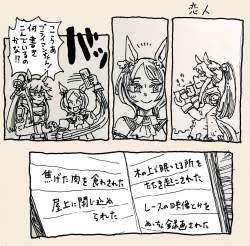 恋人
こらあ
ブライアンちゃん!
何書き
こんでいるの
かな!!
ガッ
木の上で眠ってる所を
たたき起こされた
レースの映像とかを
録画された
焦げた肉を食わされた
屋上に閉じ込め
られた